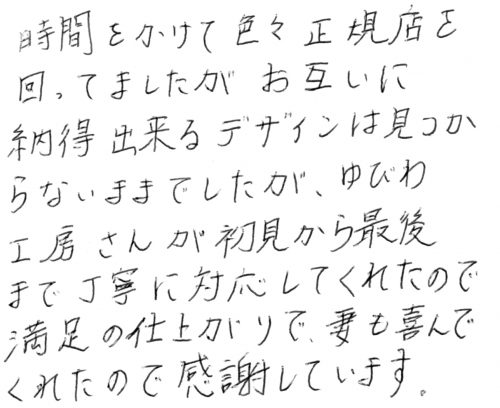 時間をかけて色々正規店を
回ってましたが お互いに
納得出来るデザインは見つか
らないままでしたが、ゆびわ
工房さんが初見から最後
まで丁寧に対応してくれたので
満足の仕上がりで、妻も喜んで
くれたので感謝しています。